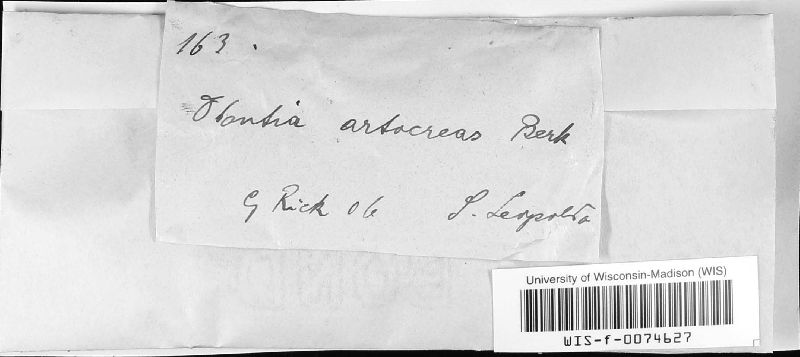 163.
Odontia artocreas Berk
G Rick 06 S. Leopoldo
University of Wisconsin-Madison (WIS)
WIS-f-0074627